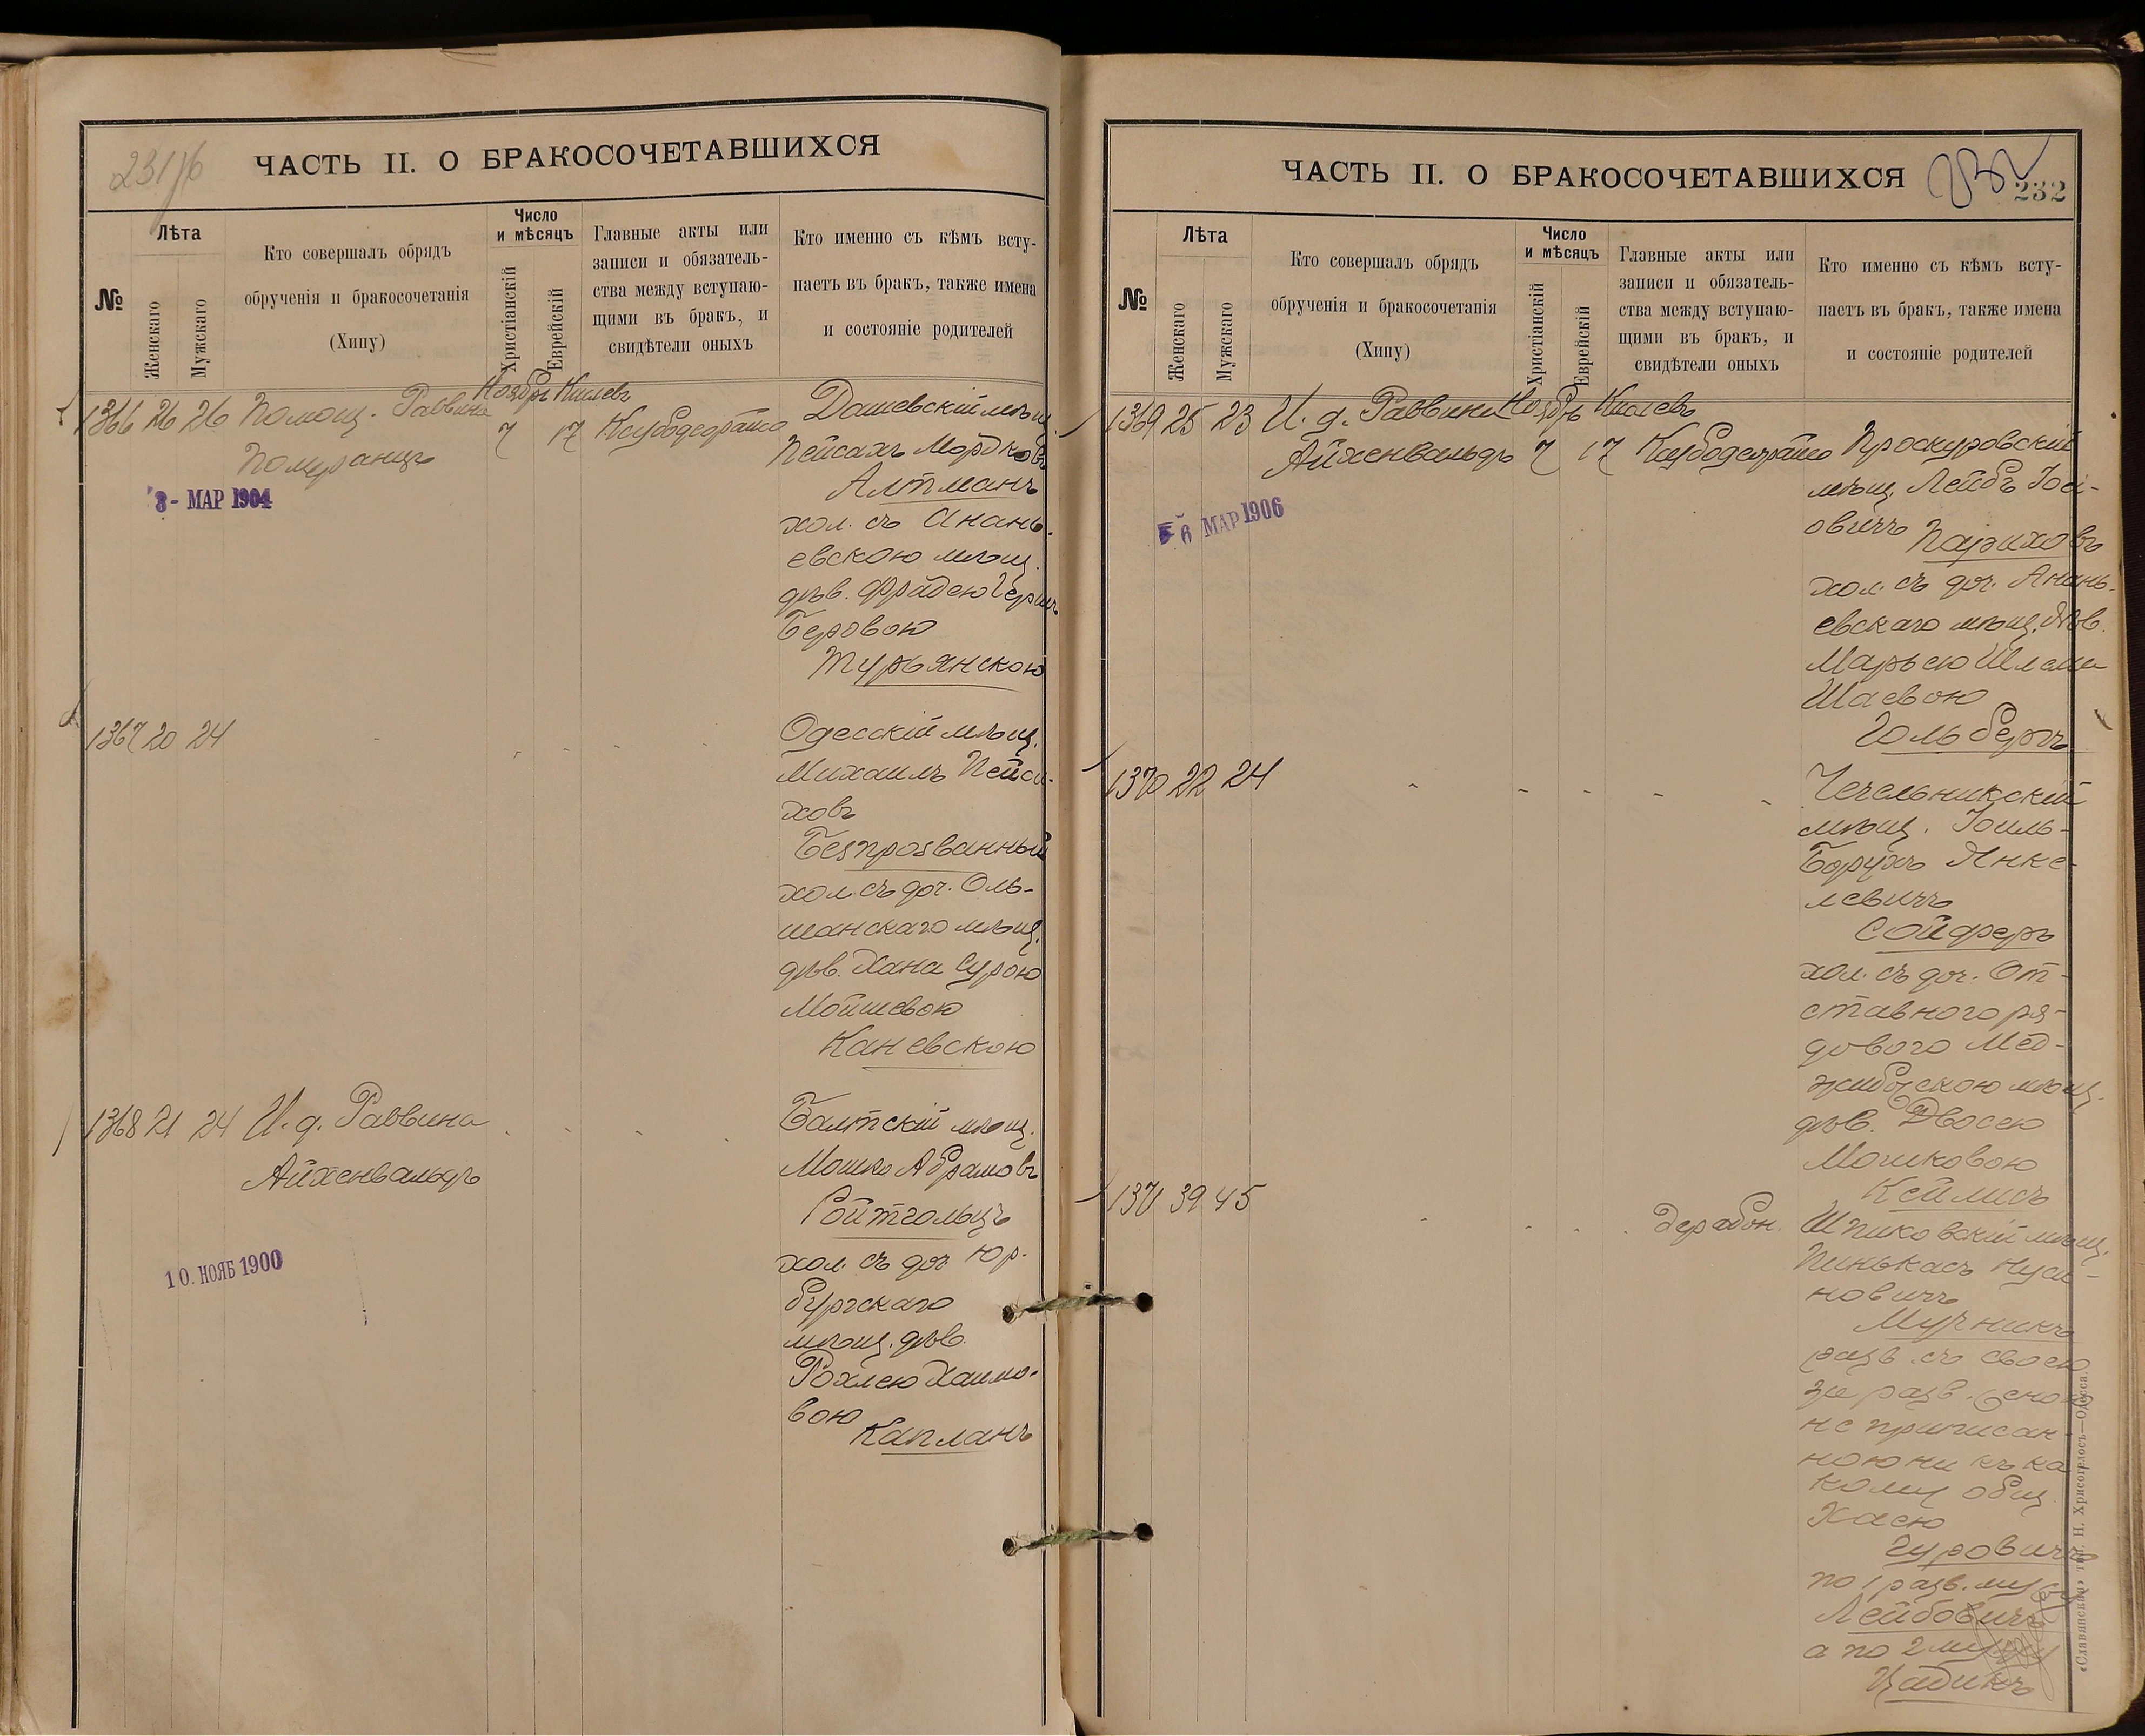 231/б
ЧАСТЬ II. О БРАКОСОЧЕТАВШИХСЯ
№
Лѣта
Женскаго
Мужскаго
Кто совершалъ обрядъ
обрученія и бракосочетанія
(Хипу)
Число
и мѣсяцъ
Христіанскій
Еврейскій
Главные акты или
записи и обязатель-
ства между вступаю-
щими въ бракъ, и
свидѣтели оныхъ
Кто именно съ кѣмъ всту-
паетъ въ бракъ, также имена
и состояніе родителей
Ноябрь Кислевъ
1366 26 26 Помощ. Раввина 7 17
Померанцъ
3- МАР 1904
Дашевскій мѣщ.
Пейсахъ Мордковъ
Алтманъ
хол. съ Анань-
евскою мѣщ.
дѣв. Фрадею Герш
Беровою
Турьянскою
1367 20 24
Одесскій мѣщ.
Михаилъ Пейса-
ховъ
Безпрозванный
хол. съ доч. Оль-
шанскаго мѣщ.
дѣв. Хана Сурою
Мойшевою
Каневскою
1368 21 24 И. д. Раввина
Айхенвальдъ
10. НОЯБ 1900
Балтскій мѣщ.
Мошко Абрамовъ
Ройтгольцъ
хол. съ доч. Юр-
бургскаго
мѣщ. дѣв.
Рохлею Хаимо-
вою
Капланъ
ЧАСТЬ II. О БРАКОСОЧЕТАВШИХСЯ
232
232
№
Лѣта
Женскаго
Мужскаго
Кто совершалъ обрядъ
обрученія и бракосочетанія
(Хипу)
Число
и мѣсяцъ
Христіанскій
Еврейскій
Главные акты или
записи и обязатель-
ства между вступаю-
щими въ бракъ, и
свидѣтели оныхъ
Кто именно съ кѣмъ всту-
паетъ въ бракъ, также имена
и состояніе родителей
1369 25 23 И. д. Раввина Ноябрь Кислевъ
Айхенвальдъ 7 17
6 МАР 1906
Проскуровскій
мѣщ. Лейбъ Іос-
овичъ Париховъ
хол. съ доч. Анань-
евскаго мѣщ. дѣв.
Марьею Шлема
Шаевою
Гольбергъ
1370 22 24
Чечельникскій
мѣщ. Іоиль-
Борухъ Янке-
левичъ
Сойферъ
хол. съ доч. От-
ставного ря-
дового Мед-
жибожскою мѣщ.
дѣв. Двосею
Мошковою
Кейлисъ
1371 39 45
дерабон.
Шпиковскій мѣщ.
Пинькасъ Нуси-
новичъ
Мучникъ
разв. съ своею
же разв. женою
не приписан-
ною ни къ ка
кому общ.
Хаею
Гуровичъ
по 1 разв. мужу
Лейбовичъ
а по 2 мужу
Цадикъ
«Славянская» тип. Н. Хрисогелосъ—Одесса.